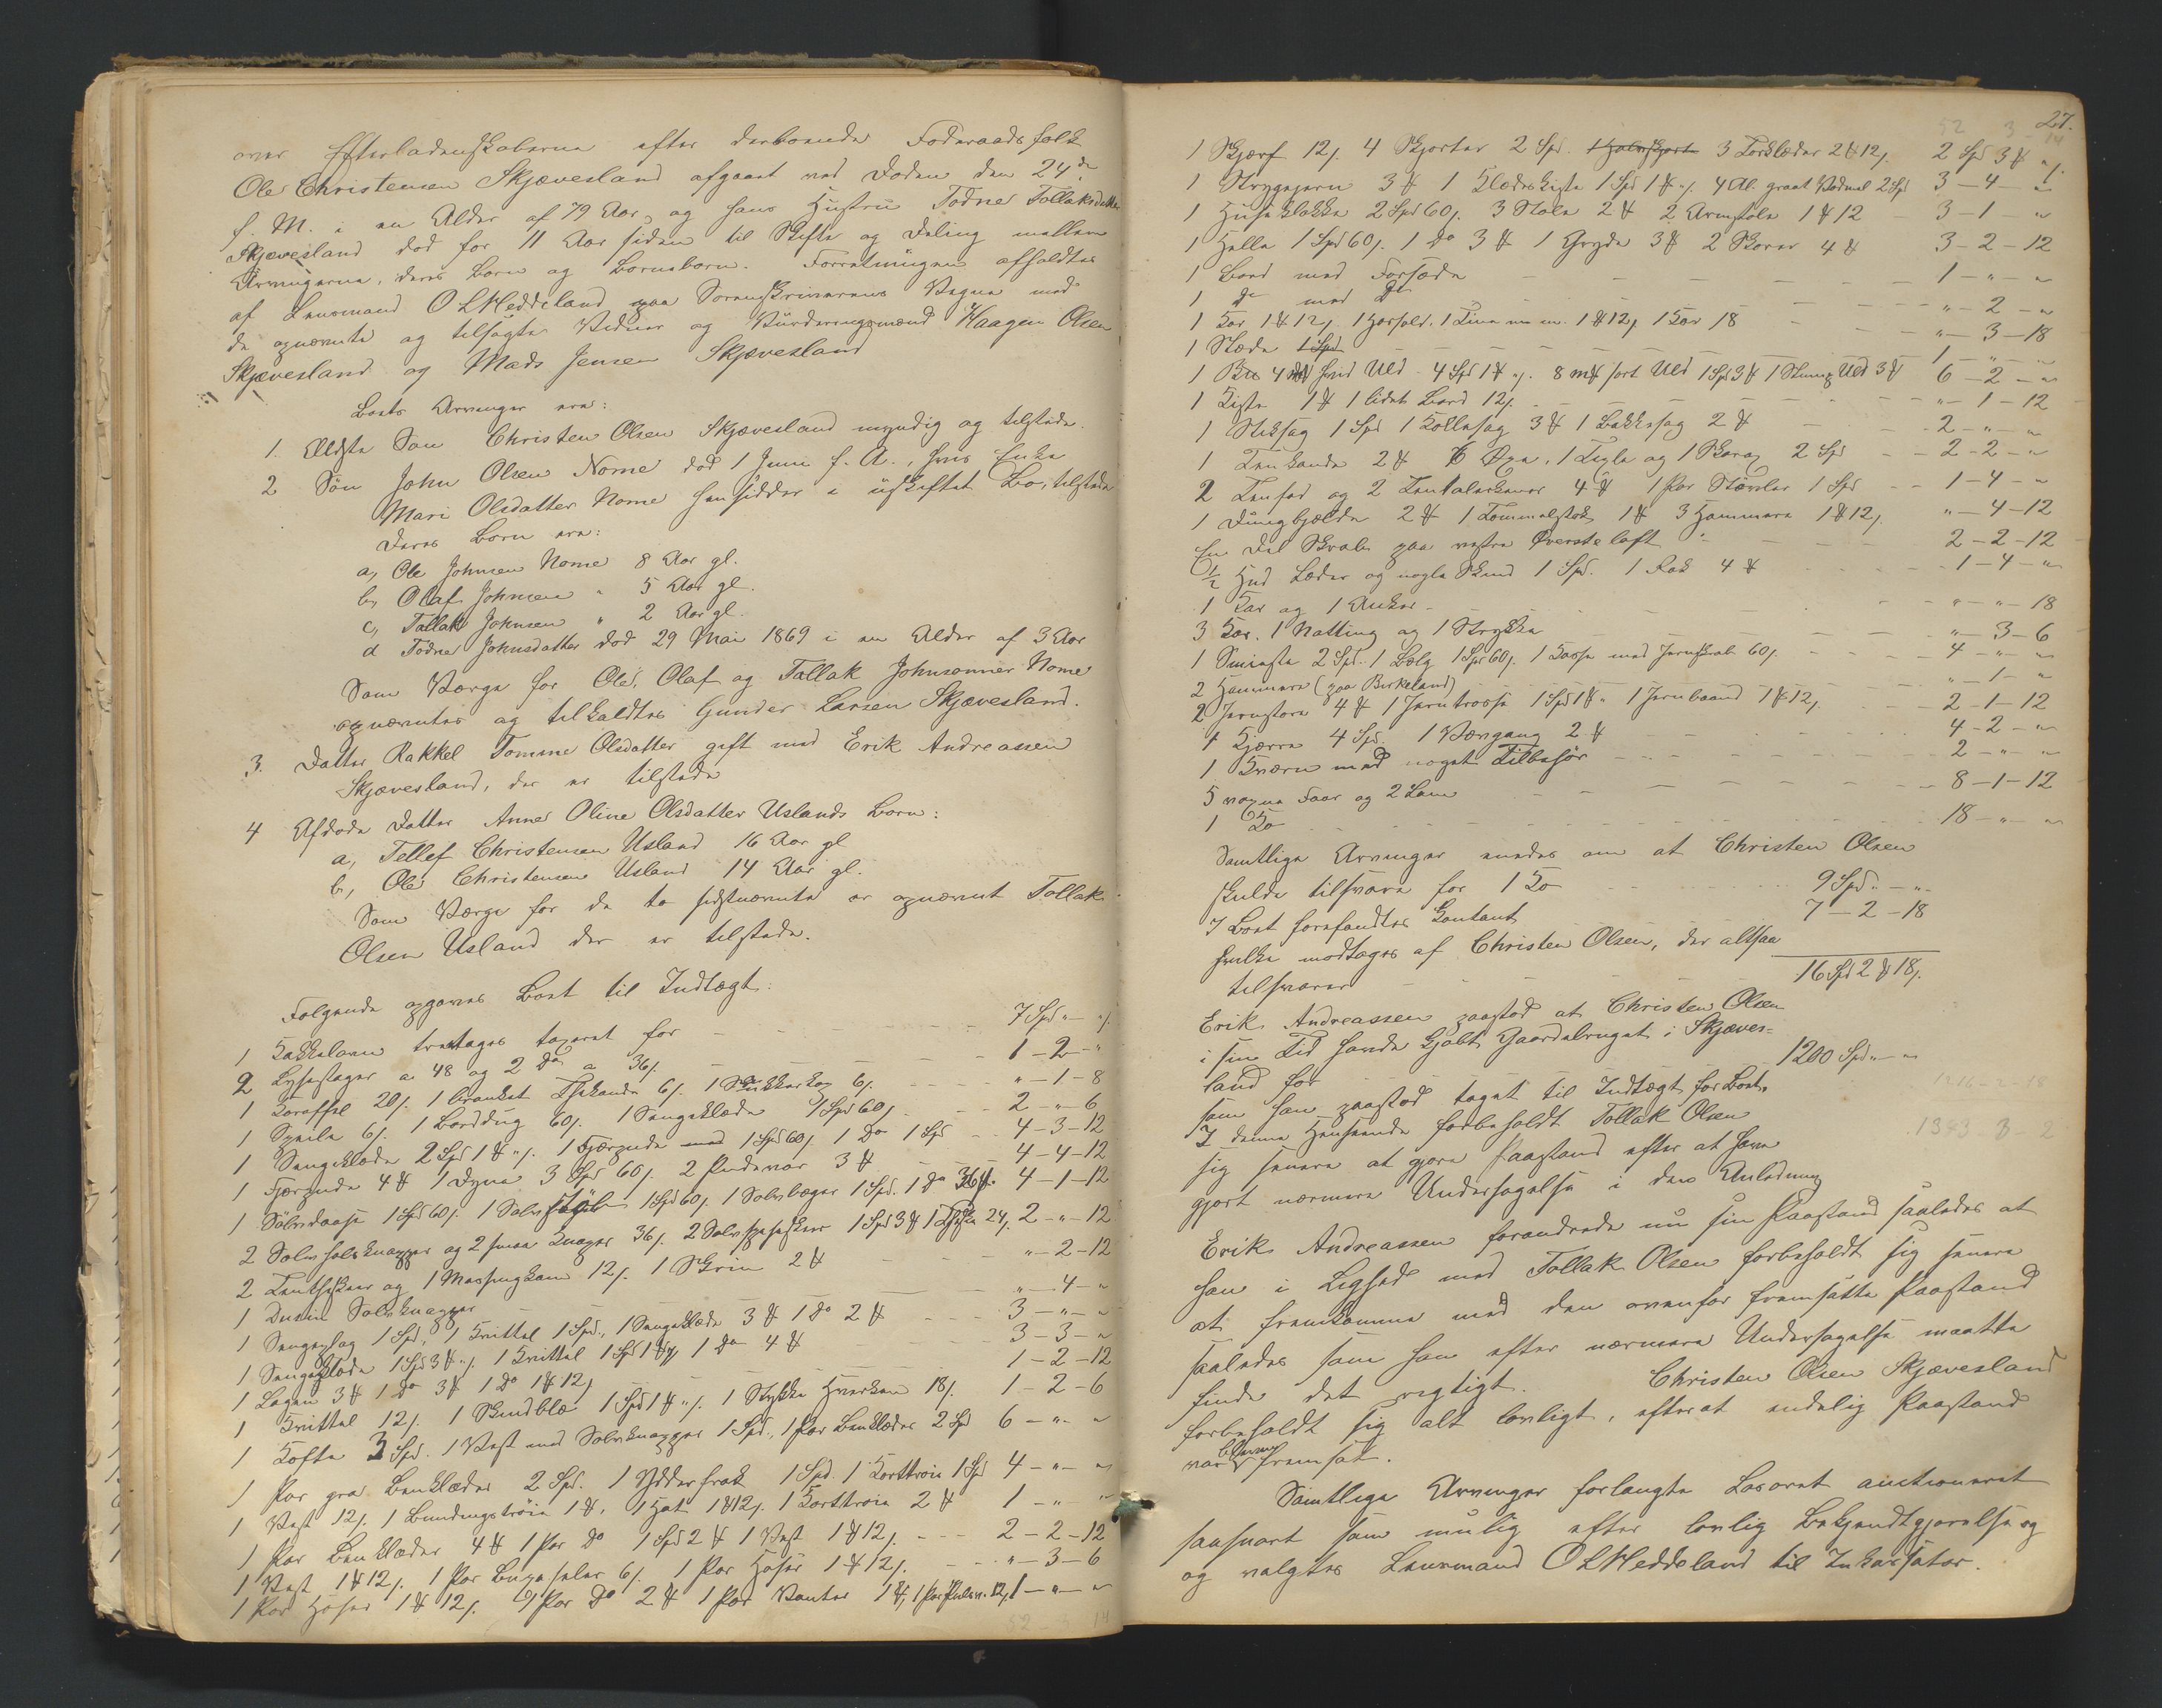 over Efterladenskaberne efter derboende Foderaadsfolk
Ole Christensen Skjævesland afgaaet ved Døden den 24de
f. M. i en Alder af 79 Aar, og hans Hustru Todne Tollaksdatter
Skjævesland død for 11 Aar siden til Skifte og Deling mellem
Arvingerne, deres Børn og Børnebørn. Forretningen afholdtes
af Lensmand O L Heddeland paa Sorenskriverens Vegne med
de opnævnte og tilsagte Vidner og Vurderingsmænd Haagen Olsen
Skjævesland og Mads Jensen Skjævesland
Boets Arvinger ere:
1. Ældste Søn Christen Olsen Skjævesland myndig og tilstede.
2 Søn John Olsen Nome død 1 Juni f. A., hvis Enke
Mari Olsdatter Nome hensidder i uskiftet Bo, tilstede
Deres Børn ere:
a, Ole Johnsen Nome 8 Aar gl.
b, Olaf Johnsen " 5 Aar gl.
c, Tallak Johnsen " 2 Aar gl.
d Todne Johnsdatter død 29 Mai 1869 i en Alder af 3 Aar
Som Værge for Ole, Olaf og Tallak Johnsønner Nome
opnævntes og tilkaldtes Gunder Larsen Skjævesland.
3. Datter Rakkel Tomine Olsdatter gift med Erik Andreassen
Skjævesland, der er tilstede
4 Afdøde Datter Anne Oline Olsdatter Uslands Børn:
a, Tellef Christensen Usland 16 Aar gl
b, Ole Christensen Usland 14 Aar gl.
Som Værge for de to sidstnævnte er opnævnt Tollak
Olsen Usland der er tilstede.
Følgende opgaves Boet til Indtægt:
1 Kakkelovn tre etages taxeret for 7 Spd " - " /.
2 Lysestager a 48 og 2 Do a 36/. 1 - 2 - "
1 Karaffel 20/. 1 brænket Thekande 6/. 1 Sukkerkop 6/. " - 1 - 8
1 Speile 6/. 1 Borddug 60/. 1 Sengeklæde 1 Spd 60/. 2 - " - 6
1 Sengeklæde 2 Spd 1 # "/. 1 Fjærpude 1 Spd 60/. 1 Do 1 Spd 4 - 3 - 12
1 Fjærpude 4 # 1 Dyne 3 Spd 60/. 2 Pudevor 3 # 4 - 4 - 12
1 Sølvdaase 1 Spd 60/. 1 Sølv 1 Spd 60/. 1 Sølvbæger 1 Spd. 1 Do 36/. 4 - 1 - 12
2 Sølv halsknapper og 2 smaa Knapper 36/. 2 Sølvspiseskeer 1 Spd 3 # 1 Theske 24/. 2 - " - 12
2 Theskeer og 1 Messingkam 12/. 1 Skrin 2 # " - 2 - 12
1 Dusin Sølvknapper " - 4 - "
1 Sengeplag 1 Spd, 1 Kvittel 1 Spd, 1 Sengeklæde 3 # 1 Do 2 # 3 - " - "
1 Sengeklæde 1 Spd 3 # "/. 1 Kvittel 1 Spd 1 # "/. 1 Do 4 # 3 - 3 - "
1 Lagen 3 # 1 Do 3 # 1 Do 1 # 12/. 1 - 2 - 12
1 Kvittel 12/. 1 Skindblæ 1 Spd 1 # "/. 1 Stykke Hverken 18/. 1 - 2 - 6
1 Kofte 3 Spd. 1 Vest med Sølvknapper 1 Spd., 1 Par Benklæder 2 Spd 6 - " - "
1 Par graa Benklæder 2 Spd. 1 Ydderfrak 1 Spd. 1 Korttrøie 1 Spd 4 - " - "
1 Vest 12/. 1 Bundingstrøie 1 #, 1 Hat 1 # 12/. 1 Korttrøie 2 # 1 - " - "
1 Par Benklæder 4 # 1 Par Do 1 Spd 2 # 1 Vest 1 # 12/. 2 - 2 - 12
1 Vest 1 # 12/. 1 Par Buxeseler 6/. 1 Par Hoser 1 # 12/. " - 3 - 6
1 Par Hoser 1 # 12/. 1 Par Do 2 # 1 Par Vanter 1 #, 1 Par 12/. 1 - " - "
52 - 3 - 14
27.
52 3 - 14
1 Skjærf 12/. 4 Skjorter 2 Spd. 3 Tørklæder 2 # 12/. 2 Spd 3 # "/.
1 Strygejern 3 # 1 Klædeskiste 1 Spd 1 # "/. 4 Al. graat Vadmel 2 Spd 3 - 4 - "
1 Huseklokke 2 Spd 60/. 3 Stole 2 # 2 Armstole 1 # 12 3 - 1 - "
1 Helle 1 Spd 60/. 1 Do 3 # 1 Gryde 3 # 2 Skorer 4 # 3 - 2 - 12
1 Bord med Forsæde 1 - " - "
1 Do med Do " - 2 - "
1 Kar 1 # 12/. 1 Tine m. m. 1 # 12/. 1 Kar 18 " - 3 - 18
1 Slæde 1 - " - "
4 hvid Uld 4 Spd 1 # "/. 8 m# sort Uld 1 Spd 3 # 1 Uld 3 # 6 - 2 - "
1 Kiste 1 # 1 lidet Bord 12/. " - 1 - 12
1 Stiksag 1 Spd 1 Kollesag 3 # 1 Bakkesag 2 # 2 - " - "
1 Kande 2 # 6 Øxe, 1 Texle og 1 Skarøx 2 Spd 2 - 2 - "
2 Tinfad og 2 Tintalerkener 4 # 1 Par Støvler 1 Spd 1 - 4 - "
1 Dungbjælde 2 # 1 Tommelstok 1 # 3 Hammere 1 # 12/. " - 4 - 12
En Del Skrab paa vestre Øversteloft 2 - 2 - 12
1/2 Hud Læder og nogle Skind 1 Spd. 1 Rok 4 # 1 - 4 - "
1 Kar og 1 Anker " - " - 18
3 Kar, 1 Natting og 1 Strykke " - 3 - 6
1 Smieste 2 Spd. 1 Bælg 1 Spd 60/. 1 Kasse med Jernskrab 60/. 4 - " - "
2 Hammere (paa Birkeland) " - 1 - "
2 Jernstører 4 # 1 Jerntrosse 1 Spd 1 # " 1 Jernbaand 1 # 12/. 2 - 1 - 12
1 Kjærre 4 Spd. 1 Vævgang 2 # 4 - 2 - "
1 Kværn med noget Tilbehør 2 - " - "
5 voxne Faar og 2 Lam 8 - 1 - 12
1 Ko 18 - " - "
Samtlige Arvinger enedes om at Christen Olsen
skulde tilsvare for 1 Ko 9 Spd " - "
I Boet forefandtes Contant 7 - 2 - 18
hvilke modtages af Christen Olsen, der altsaa
tilsvarer 16 Spd 2 # 18/.
Erik Andreassen paastod at Christen Olsen
i sin Tid havde kjøbt Gaardebruget i Skjæves=
land for 1200 Spd " - "
som han paastod taget til Indtægt for Boet.
I denne Henseende forbeholdt Tollak Olsen
1343 3 2
sig senere at gjøre Paastand efter at have
gjort nærmere Undersøgelse i den Anledning
Erik Andreassen forandrede nu sin Paastand saaledes at
han i Lighed med Tollak Olsen forbeholdt sig senere
at fremkomme med den ovenfor fremsatte Paastand
saaledes som han efter nærmere Undersøgelse maatte
finde det rigtigt. Christen Olsen Skjævesland
forbeholdt sig alt lovligt, efterat endelig Paastand
var bleven fremsat.
Samtlige Arvinger forlangte Løsøret auctioneret
saasnart som mulig efter lovlig Bekjendtgjørelse og
og valgtes Lensmand O L Heddeland til Inkassator.